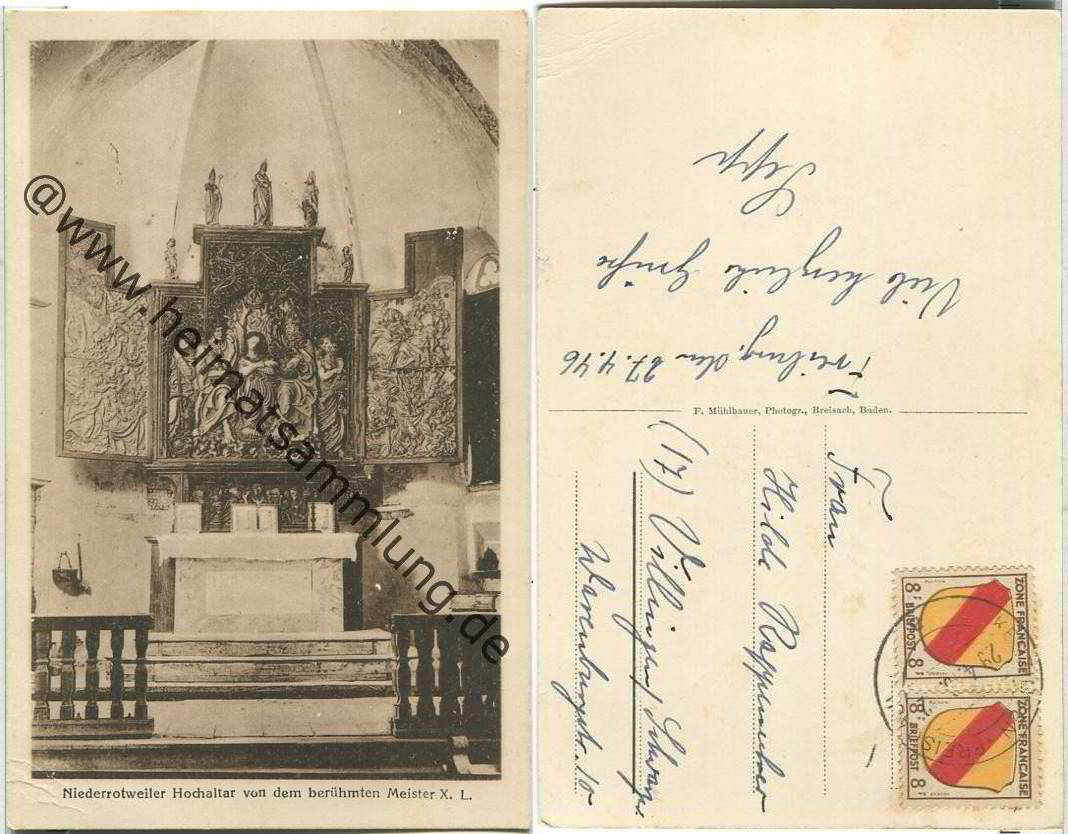 @www.heimatsammlung.de
Niederrotweiler Hochaltar von dem berühmten Meister X. L.
Freiburg, den 27.4.46
Viele herzliche Grüße
Sepp
F. Mühlbauer, Photogr., Breisach, Baden.
Frau
Hilde
(17) Villingen/Schwarzw.
Warenburgstr. 10
ZONE FRANÇAISE
8 BRIEFPOST 8
ZONE FRANÇAISE
8 BRIEFPOST 8